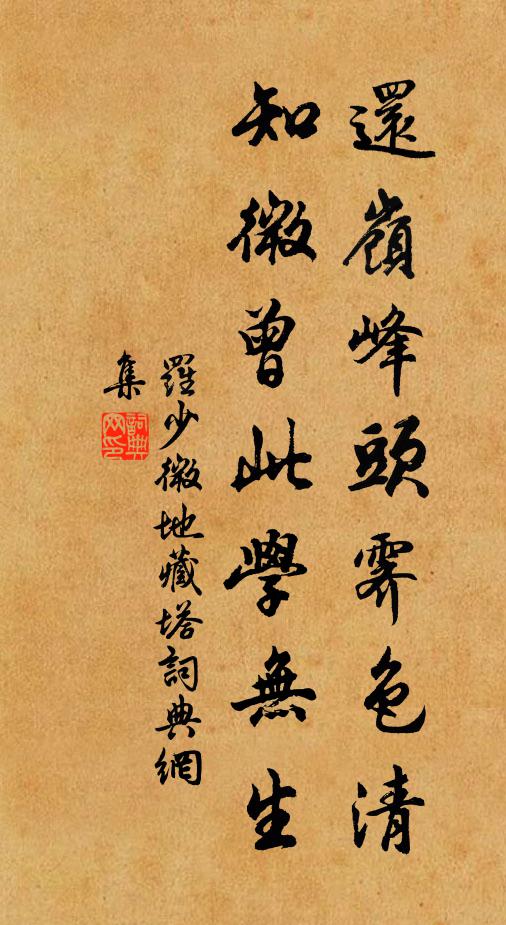 還嶺峰頭霽色清
知微曾此學無生
羅少微地藏塔詞典網
集
詞典網印